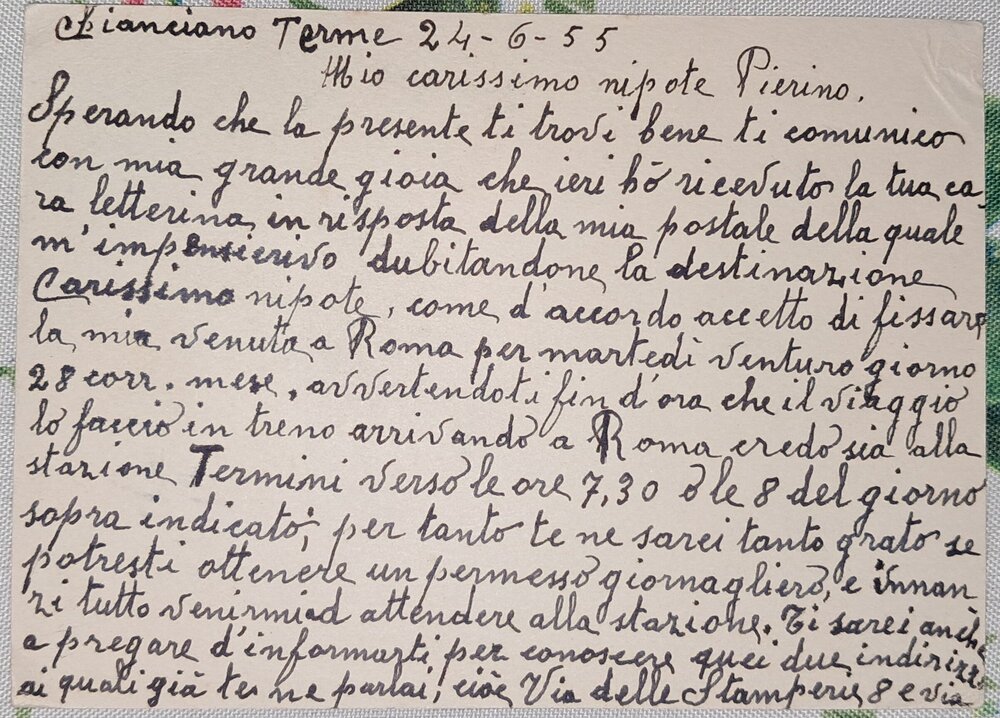 Chianciano Terme 24-6-55
Mio carissimo nipote Pierino.
Sperando che la presente ti trovi bene ti comunico
con mia grande gioia che ieri hò ricevuto la tua ca
ra letterina in risposta della mia postale della quale
m'impenserivo dubitandone la destinazione
Carissimo nipote, come d'accordo accetto di fissare
la mia venuta a Roma per martedì venturo giorno
28 corr. mese, avvertendoti fin d'ora che il viaggio
lo faccio in treno arrivando a Roma credo sia alla
stazione Termini verso le ore 7,30 o le 8 del giorno
sopra indicato; per tanto te ne sarei tanto grato se
potresti ottenere un permesso giornagliero, e innan
zi tutto venirmi ad attendere alla stazione. Ti sarei anche
a pregare d'informarti per conoscere quei due indirizzi
ai quali già te ne parlai, cioè Via delle Stamperie 8 e via